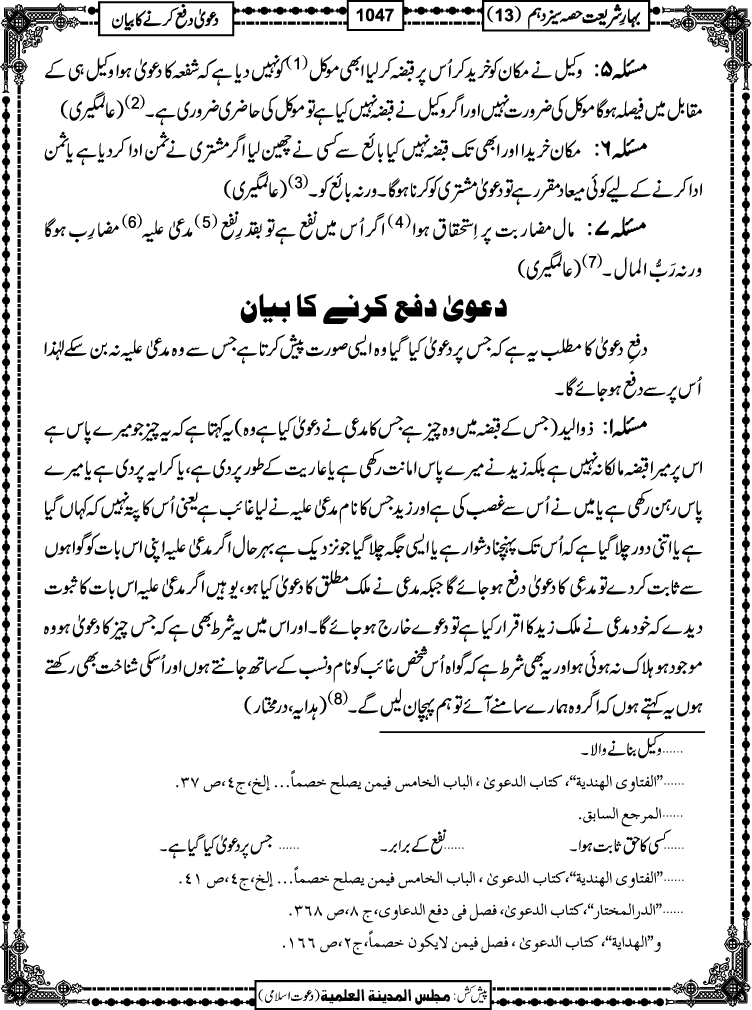 بہارِ شریعت حصہ سیزدہم (13)
1047
دعویٰ دفع کرنے کا بیان
مسئلہ ۵: وکیل نے مکان کو خرید کر اُس پر قبضہ کر لیا ابھی موکل (1) کو نہیں دیا ہے کہ شفعہ کا دعویٰ ہوا وکیل ہی کے
مقابل میں فیصلہ ہوگا موکل کی ضرورت نہیں اور اگر وکیل نے قبضہ نہیں کیا ہے تو موکل کی حاضری ضروری ہے۔ (2) (عالمگیری)
مسئلہ ۶: مکان خریدا اور ابھی تک قبضہ نہیں کیا بائع سے کسی نے چھین لیا اگر مشتری نے ثمن ادا کر دیا ہے یا ثمن
ادا کرنے کے لیے کوئی میعاد مقرر ہے تو دعویٰ مشتری کو کرنا ہوگا۔ ورنہ بائع کو۔ (3) (عالمگیری)
مسئلہ ۷: مال مضاربت پر اِستحقاق ہوا (4) اگر اُس میں نفع ہے تو بقدرِ نفع (5) مدعیٰ علیہ (6) مضارِب ہوگا
ورنہ رَبُّ المال۔ (7) (عالمگیری)
دعویٰ دفع کرنے کا بیان
دفعِ دعویٰ کا مطلب یہ ہے کہ جس پر دعویٰ کیا گیا وہ ایسی صورت پیش کرتا ہے جس سے وہ مدعیٰ علیہ نہ بن سکے لہٰذا
اُس پر سے دفع ہو جائے گا۔
مسئلہ ۱: ذوالید (جس کے قبضہ میں وہ چیز ہے جس کا مدعی نے دعویٰ کیا ہے وہ) یہ کہتا ہے کہ یہ چیز جو میرے پاس ہے
اس پر میرا قبضہ مالکانہ نہیں ہے بلکہ زید نے میرے پاس امانت رکھی ہے یا عاریت کے طور پر دی ہے، یا کرایہ پر دی ہے یا میرے
پاس رہن رکھی ہے یا میں نے اُس سے غصب کی ہے اور زید جس کا نام مدعیٰ علیہ نے لیا غائب ہے یعنی اُس کا پتہ نہیں کہ کہاں گیا
ہے یا اتنی دور چلا گیا ہے کہ اُس تک پہنچنا دشوار ہے یا ایسی جگہ چلا گیا جو نزدیک ہے بہرحال اگر مدعیٰ علیہ اپنی اس بات کو گواہوں
سے ثابت کر دے تو مدعِی کا دعویٰ دفع ہو جائے گا جبکہ مدعی نے ملک مطلق کا دعویٰ کیا ہو، یوہیں اگر مدعیٰ علیہ اس بات کا ثبوت
دیدے کہ خود مدعی نے ملک زید کا اقرار کیا ہے تو دعوے خارج ہو جائے گا۔ اور اس میں یہ شرط بھی ہے کہ جس چیز کا دعویٰ ہو وہ
موجود ہو ہلاک نہ ہوئی ہو اور یہ بھی شرط ہے کہ گواہ اُس شخص غائب کو نام و نسب کے ساتھ جانتے ہوں اور اُسکی شناخت بھی رکھتے
ہوں یہ کہتے ہوں کہ اگر وہ ہمارے سامنے آئے تو ہم پہچان لیں گے۔ (8) (ہدایہ، درمختار)
......وکیل بنانے والا۔
......"الفتاوى الهندية"، كتاب الدعوىٰ ، الباب الخامس فيمن يصلح خصماً... إلخ،ج٤،ص ٣٧.
......المرجع السابق.
......کسی کا حق ثابت ہوا۔ ......نفع کے برابر۔ ...... جس پر دعویٰ کیا گیا ہے۔
......"الفتاوى الهندية"،كتاب الدعوىٰ ، الباب الخامس فيمن يصلح خصماً... إلخ،ج٤،ص ٤١.
......"الدرالمختار"،كتاب الدعوىٰ، فصل فی دفع الدعاوی،ج ٨،ص ٣٦٨.
و"الهداية"، كتاب الدعوىٰ ، فصل فيمن لايكون خصماً،ج٢،ص ١٦٦.
پیش کش: مجلس المدینۃ العلمیۃ (دعوت اسلامی)